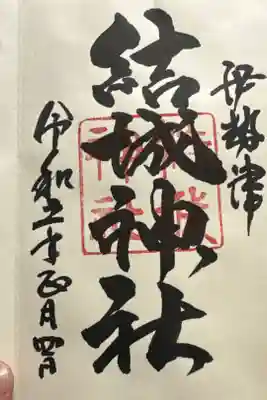 伊勢津
結城神社
令和二年正月四日